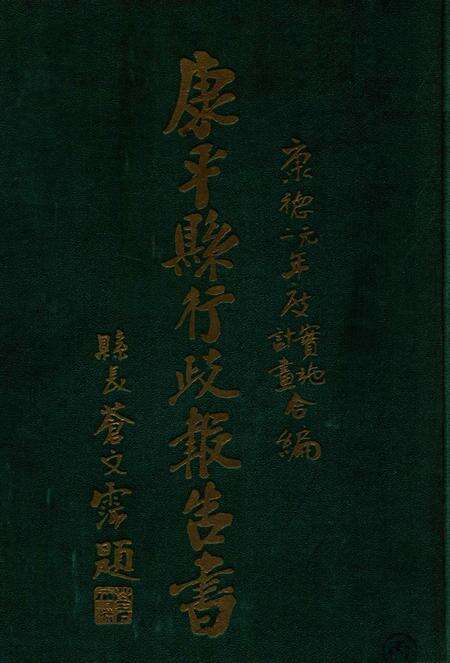 康德元年度實施計畫合編
康平縣行政報告書
縣長蒼文霈題